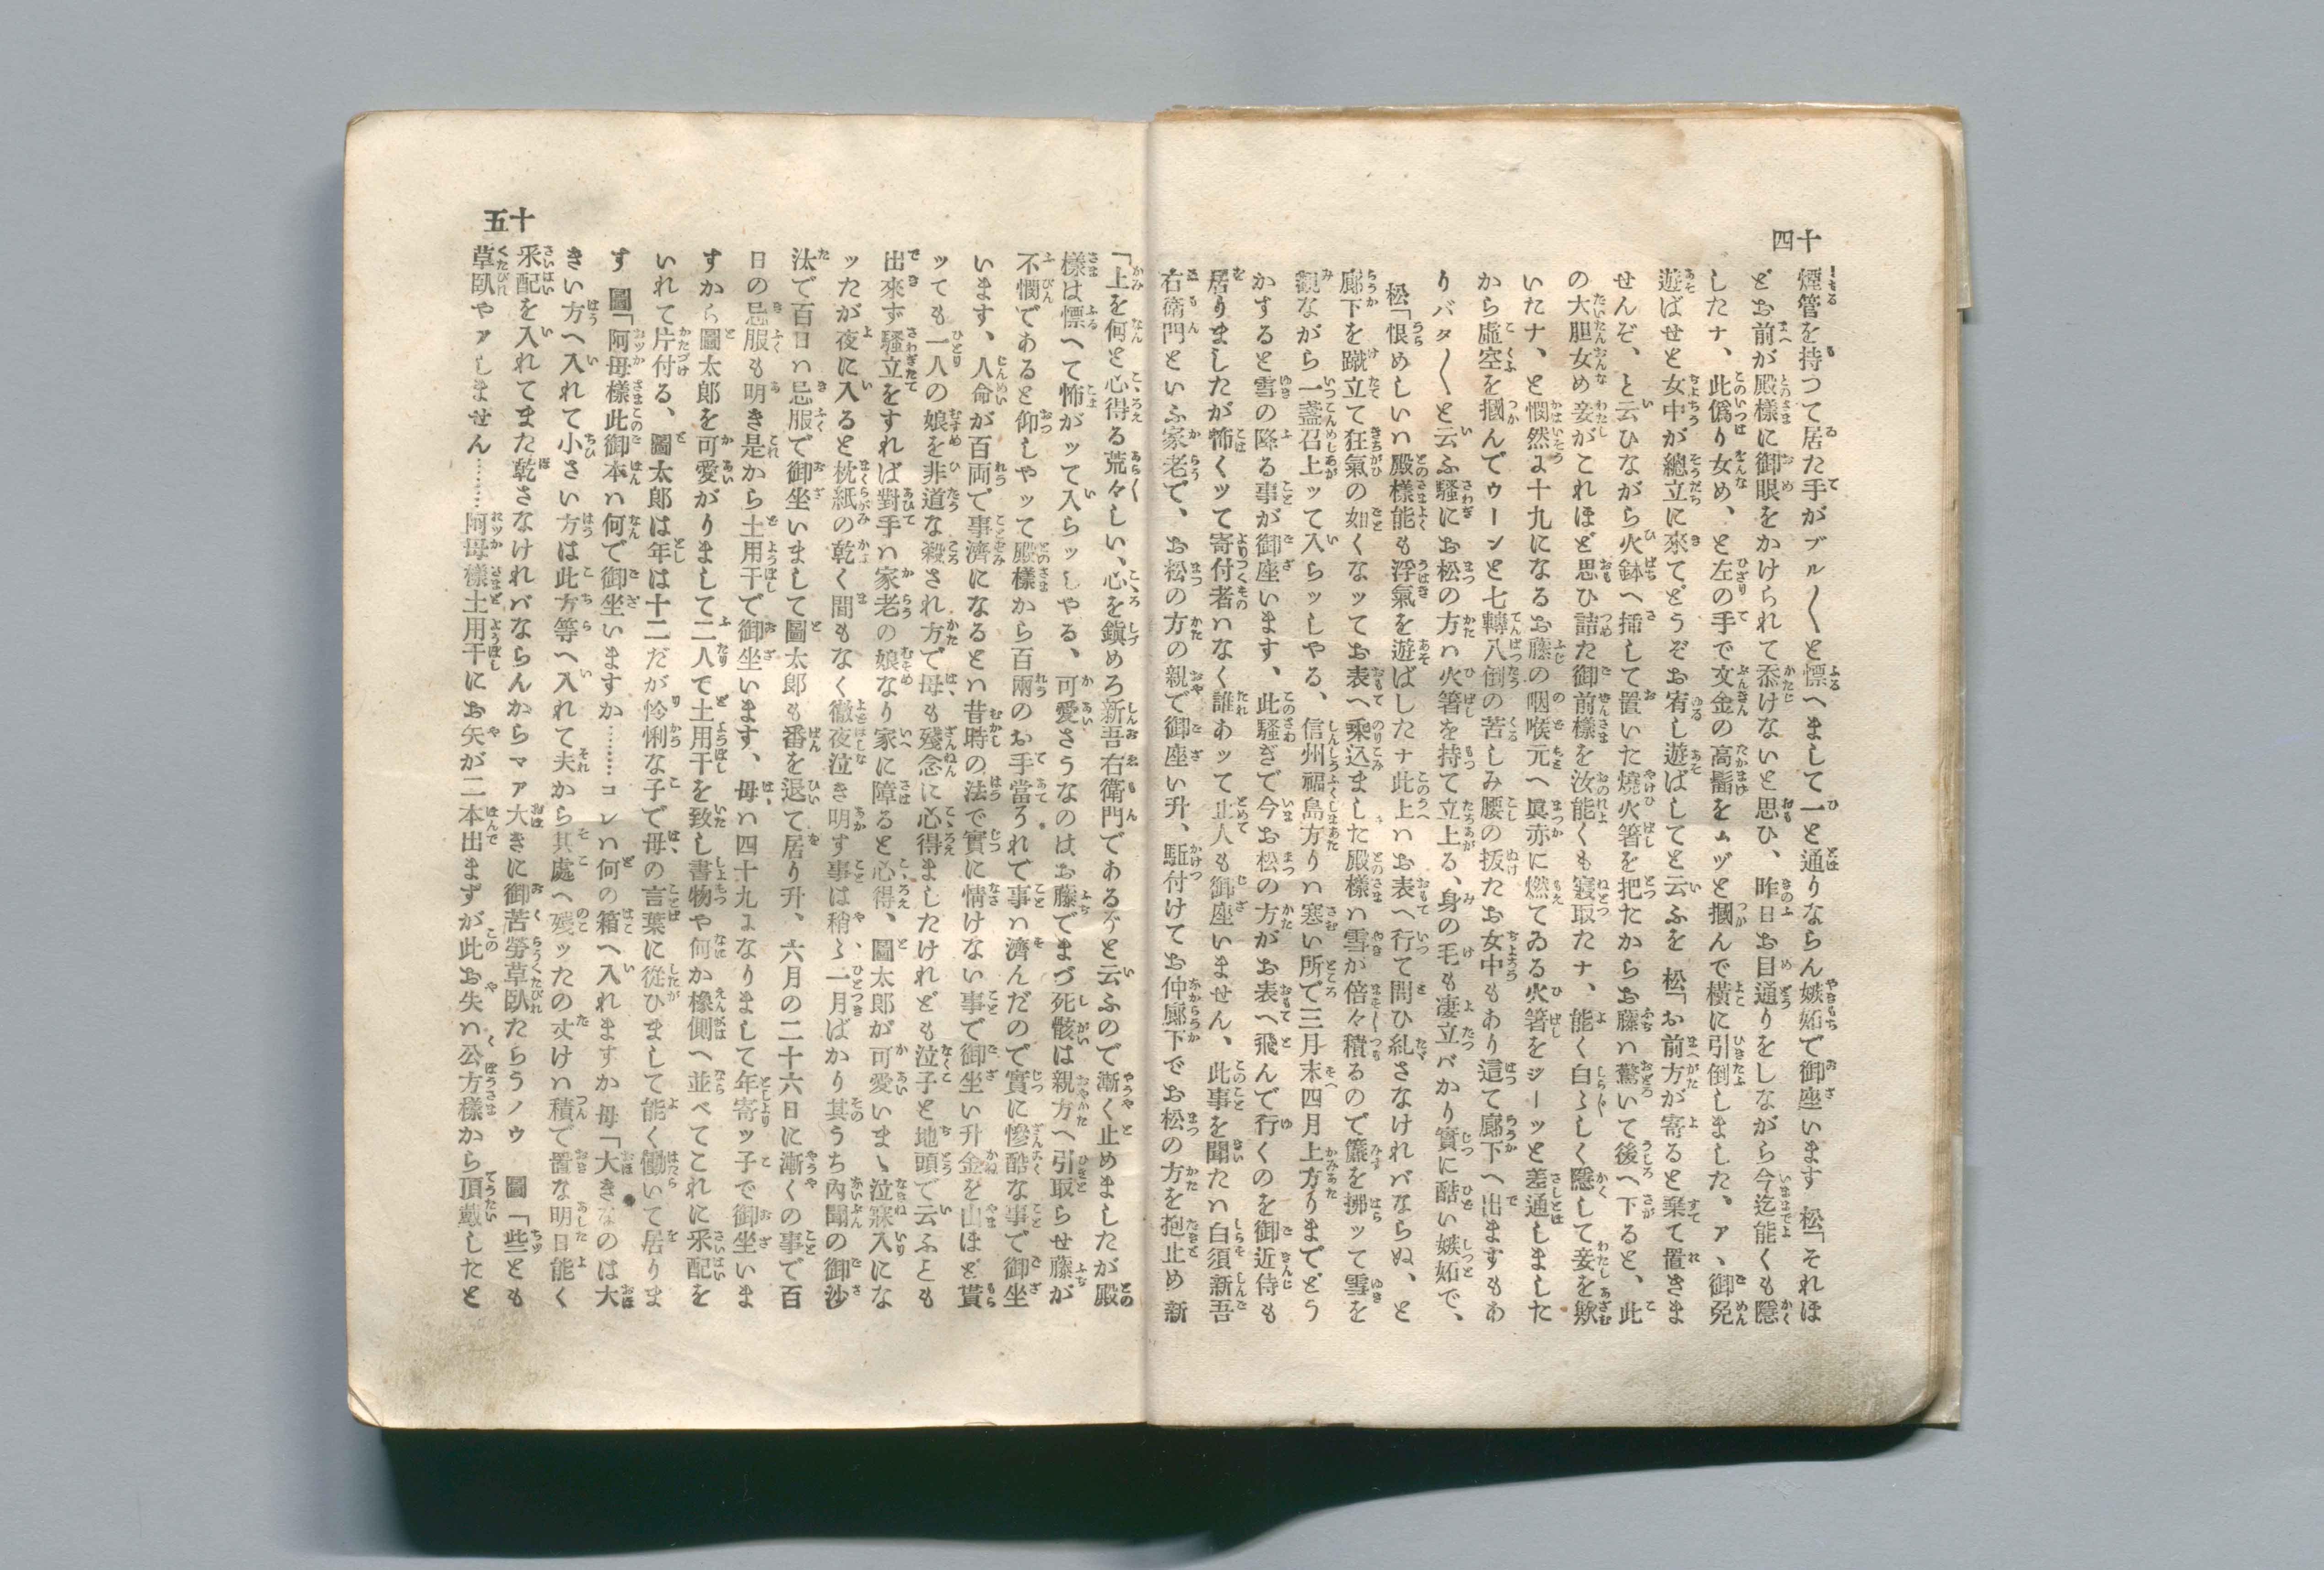 十四
煙管を持つて居た手がブル〱と慄へまして一と通りならん嫉妬で御座います 松「それほ
どお前が殿樣に御眼をかけられて忝けないと思ひ、昨日お目通りをしながら今迄能くも隱
したナ、此僞り女め、と左の手で文金の高髷をムヅと摑んで橫に引倒しました。アヽ御免
遊ばせと女中が總立に來てどうぞお宥し遊ばしてと云ふを 松「お前方が寄ると棄て置きま
せんぞ、と云ひながら火鉢へ揷して置いた燒火箸を把たからお藤ハ驚いて後へ下ると、此
の大胆女め妾がこれほど思ひ詰た御前樣を汝能くも寢取たナ、能く白〻しく隱して妾を欺
いたナ、と憫然ェ十九になるお藤の咽喉元へ眞赤に燃てゐる火箸をジーッと差通しました
から虛空を摑んでウーンと七轉八倒の苦しみ腰の拔たお女中もあり這て廊下へ出ますもあ
りバタ〱と云ふ騷にお松の方ハ火箸を持て立上る、身の毛も凄立バかり實に酷い嫉妬で、
松「恨めしいハ殿樣能も浮氣を遊ばしたナ此上ハお表へ行て問ひ糺さなけれバならぬ、と
廊下を蹴立て狂氣の如くなッてお表へ乘込ました殿樣ハ雪が倍々積るので簾を拂ッて雪を
觀ながら一盞召上ッて入らッしやる、信州福島方りハ寒い所で三月末四月上方りまでどう
かすると雪の降る事が御座います、此騷ぎで今お松の方がお表へ飛んで行くのを御近侍も
居りましたが怖くッて寄付者ハなく誰あッて止人も御座いません、此事を聞たハ白須新吾
右衛門といふ家老で、お松の方の親で御座い升、駈付けてお仲廊下でお松の方を抱止め新
十五
「上を何と心得る荒々しい、心を鎭めろ新吾右衛門であるぞと云ふので漸く止めましたが殿
樣は慄へて怖がッて入らッしやる、可愛さうなのはお藤でまづ死骸は親方へ引取らせ藤が
不憫であると仰しやッて殿樣から百兩のお手當うれで事ハ濟んだので實に慘酷な事で御坐
います、人命が百両で事濟になるとハ昔時の法で實に情けない事で御坐い升金を山ほど貰
ッても一人の娘を非道な殺され方で母も殘念に心得ましたけれども泣子と地頭で云ふとも
出來ず騷立をすれば對手ハ家老の娘なり家に障ると心得、圖太郎が可愛いまゝ泣寐入にな
ッたが夜に入ると枕紙の乾く間もなく徹夜泣き明す事は稍〻一月ばかり其うち內聞の御沙
汰で百日ハ忌服で御坐いまして圖太郎も番を退て居り升、六月の二十六日に漸くの事で百
日の忌服も明き是から土用干で御坐います、母ハ四十九ェなりまして年寄ッ子で御坐いま
すから圖太郎を可愛がりまして二人で土用干を致し書物や何か椽側へ並べてこれに采配を
いれて片付る、圖太郎は年は十二だが怜悧な子で母の言葉に從ひまして能く働いて居りま
す 圖「阿母樣此御本ハ何で御坐いますか……コレハ何の箱へ入れますか 母「大きなのは大
きい方へ入れて小さい方は此方等へ入れて夫から其處へ殘ッたの丈けハ積で置な明日能く
采配を入れてまた乾さなけれバならんからマァ大きに御苦勞草臥たらうノウ 圖「些とも
草臥やァしません……阿母樣土用干にお矢が二本出まずが此お矢ハ公方樣から頂戴したと